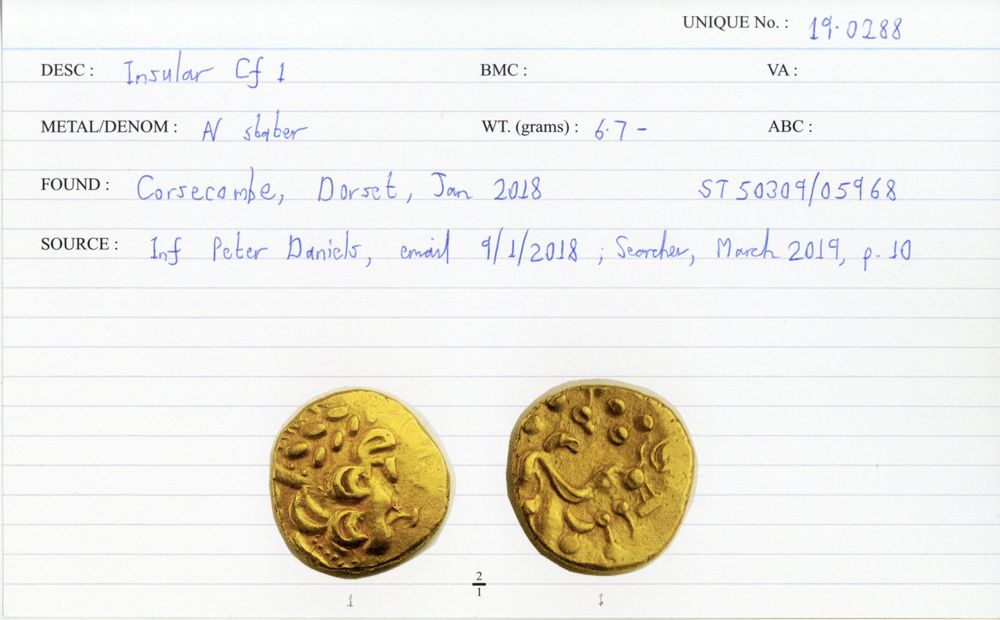 UNIQUE No. : 19.0288
DESC : Insular Cf 1 BMC : VA :
METAL/DENOM : AV stater WT. (grams) : 6.7 - ABC :
FOUND : Corsecombe, Dorset, Jan 2018 ST 50309/05968
SOURCE : Inf Peter Daniels, email 9/1/2018 ; Searcher, March 2019, p. 10
2
1
1